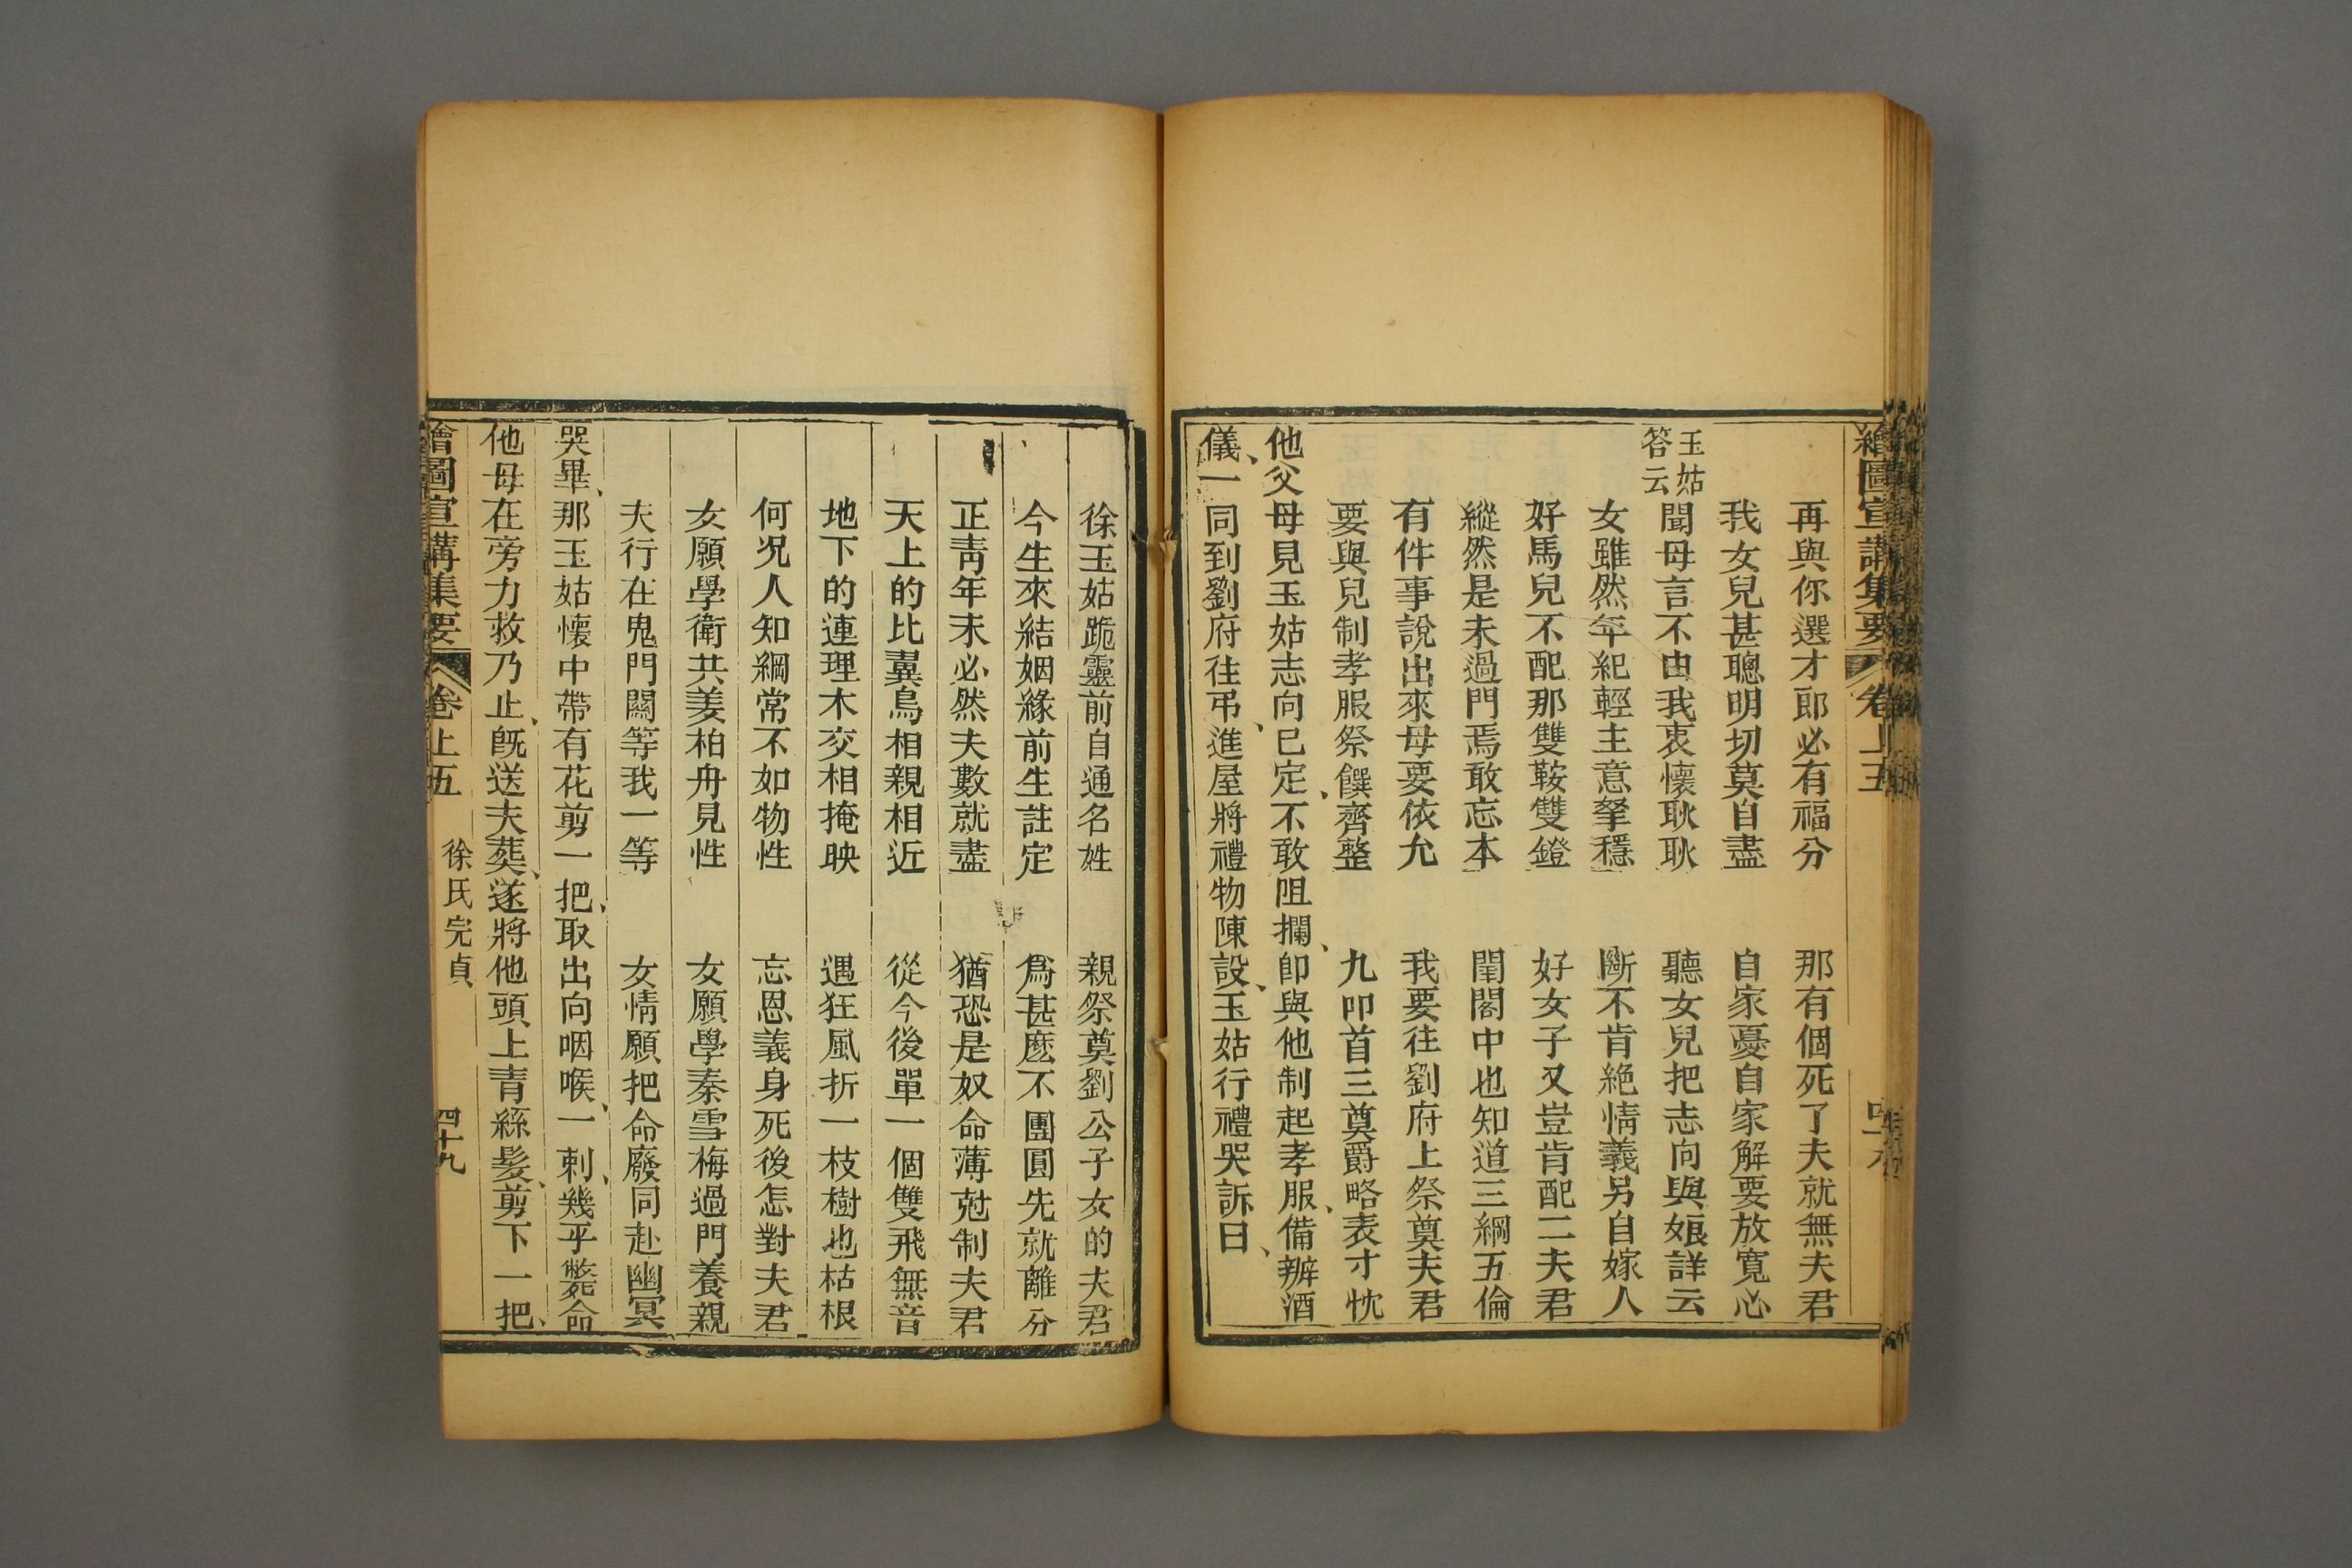 繪圖宣講集要 卷上五
再與你選才郎必有福分 那有個死了夫就無夫君
我女兒甚聰明切莫自盡 自家憂自家解要放寬心
玉姑答云 聞母言不由我衷懷耿耿 聽女兒把志向與娘詳云
女雖然年紀輕主意拏穩 斷不肯絕情義另自嫁人
好馬兒不配那雙鞍雙鐙 好女子又豈肯配二夫君
縱然是未過門焉敢忘本 閨閣中也知道三綱五倫
有件事說出來母要依允 我要往劉府上祭奠夫君
要與兒制孝服祭饌齊整 九叩首三奠爵略表寸忱
他父母見玉姑志向已定、不敢阻攔、卽與他制起孝服、備辦酒
儀、一同到劉府往弔、進屋將禮物陳設、玉姑行禮哭訴曰、
徐玉姑跪靈前自通名姓 親祭奠劉公子女的夫君
今生來結姻緣前生註定 爲甚麽不團圓先就離分
正靑年未必然夫數就盡 猶恐是奴命薄尅制夫君
天上的比翼鳥相親相近 從今後單一個雙飛無音
地下的連理木交相掩映 遇狂風折一枝樹也枯根
何况人知綱常不如物性 忘恩義身死後怎對夫君
女願學衛共姜柏舟見性 女願學秦雪梅過門養親
夫行在鬼門關等我一等 女情願把命廢同赴幽冥
哭畢、那玉姑懷中帶有花剪一把、取出向咽喉、一刺、幾乎斃命
他母在旁力救乃止、旣送夫葬、遂將他頭上青絲髮、剪下一把、
繪圖宣講集要 卷上五 徐氏完貞 四十九